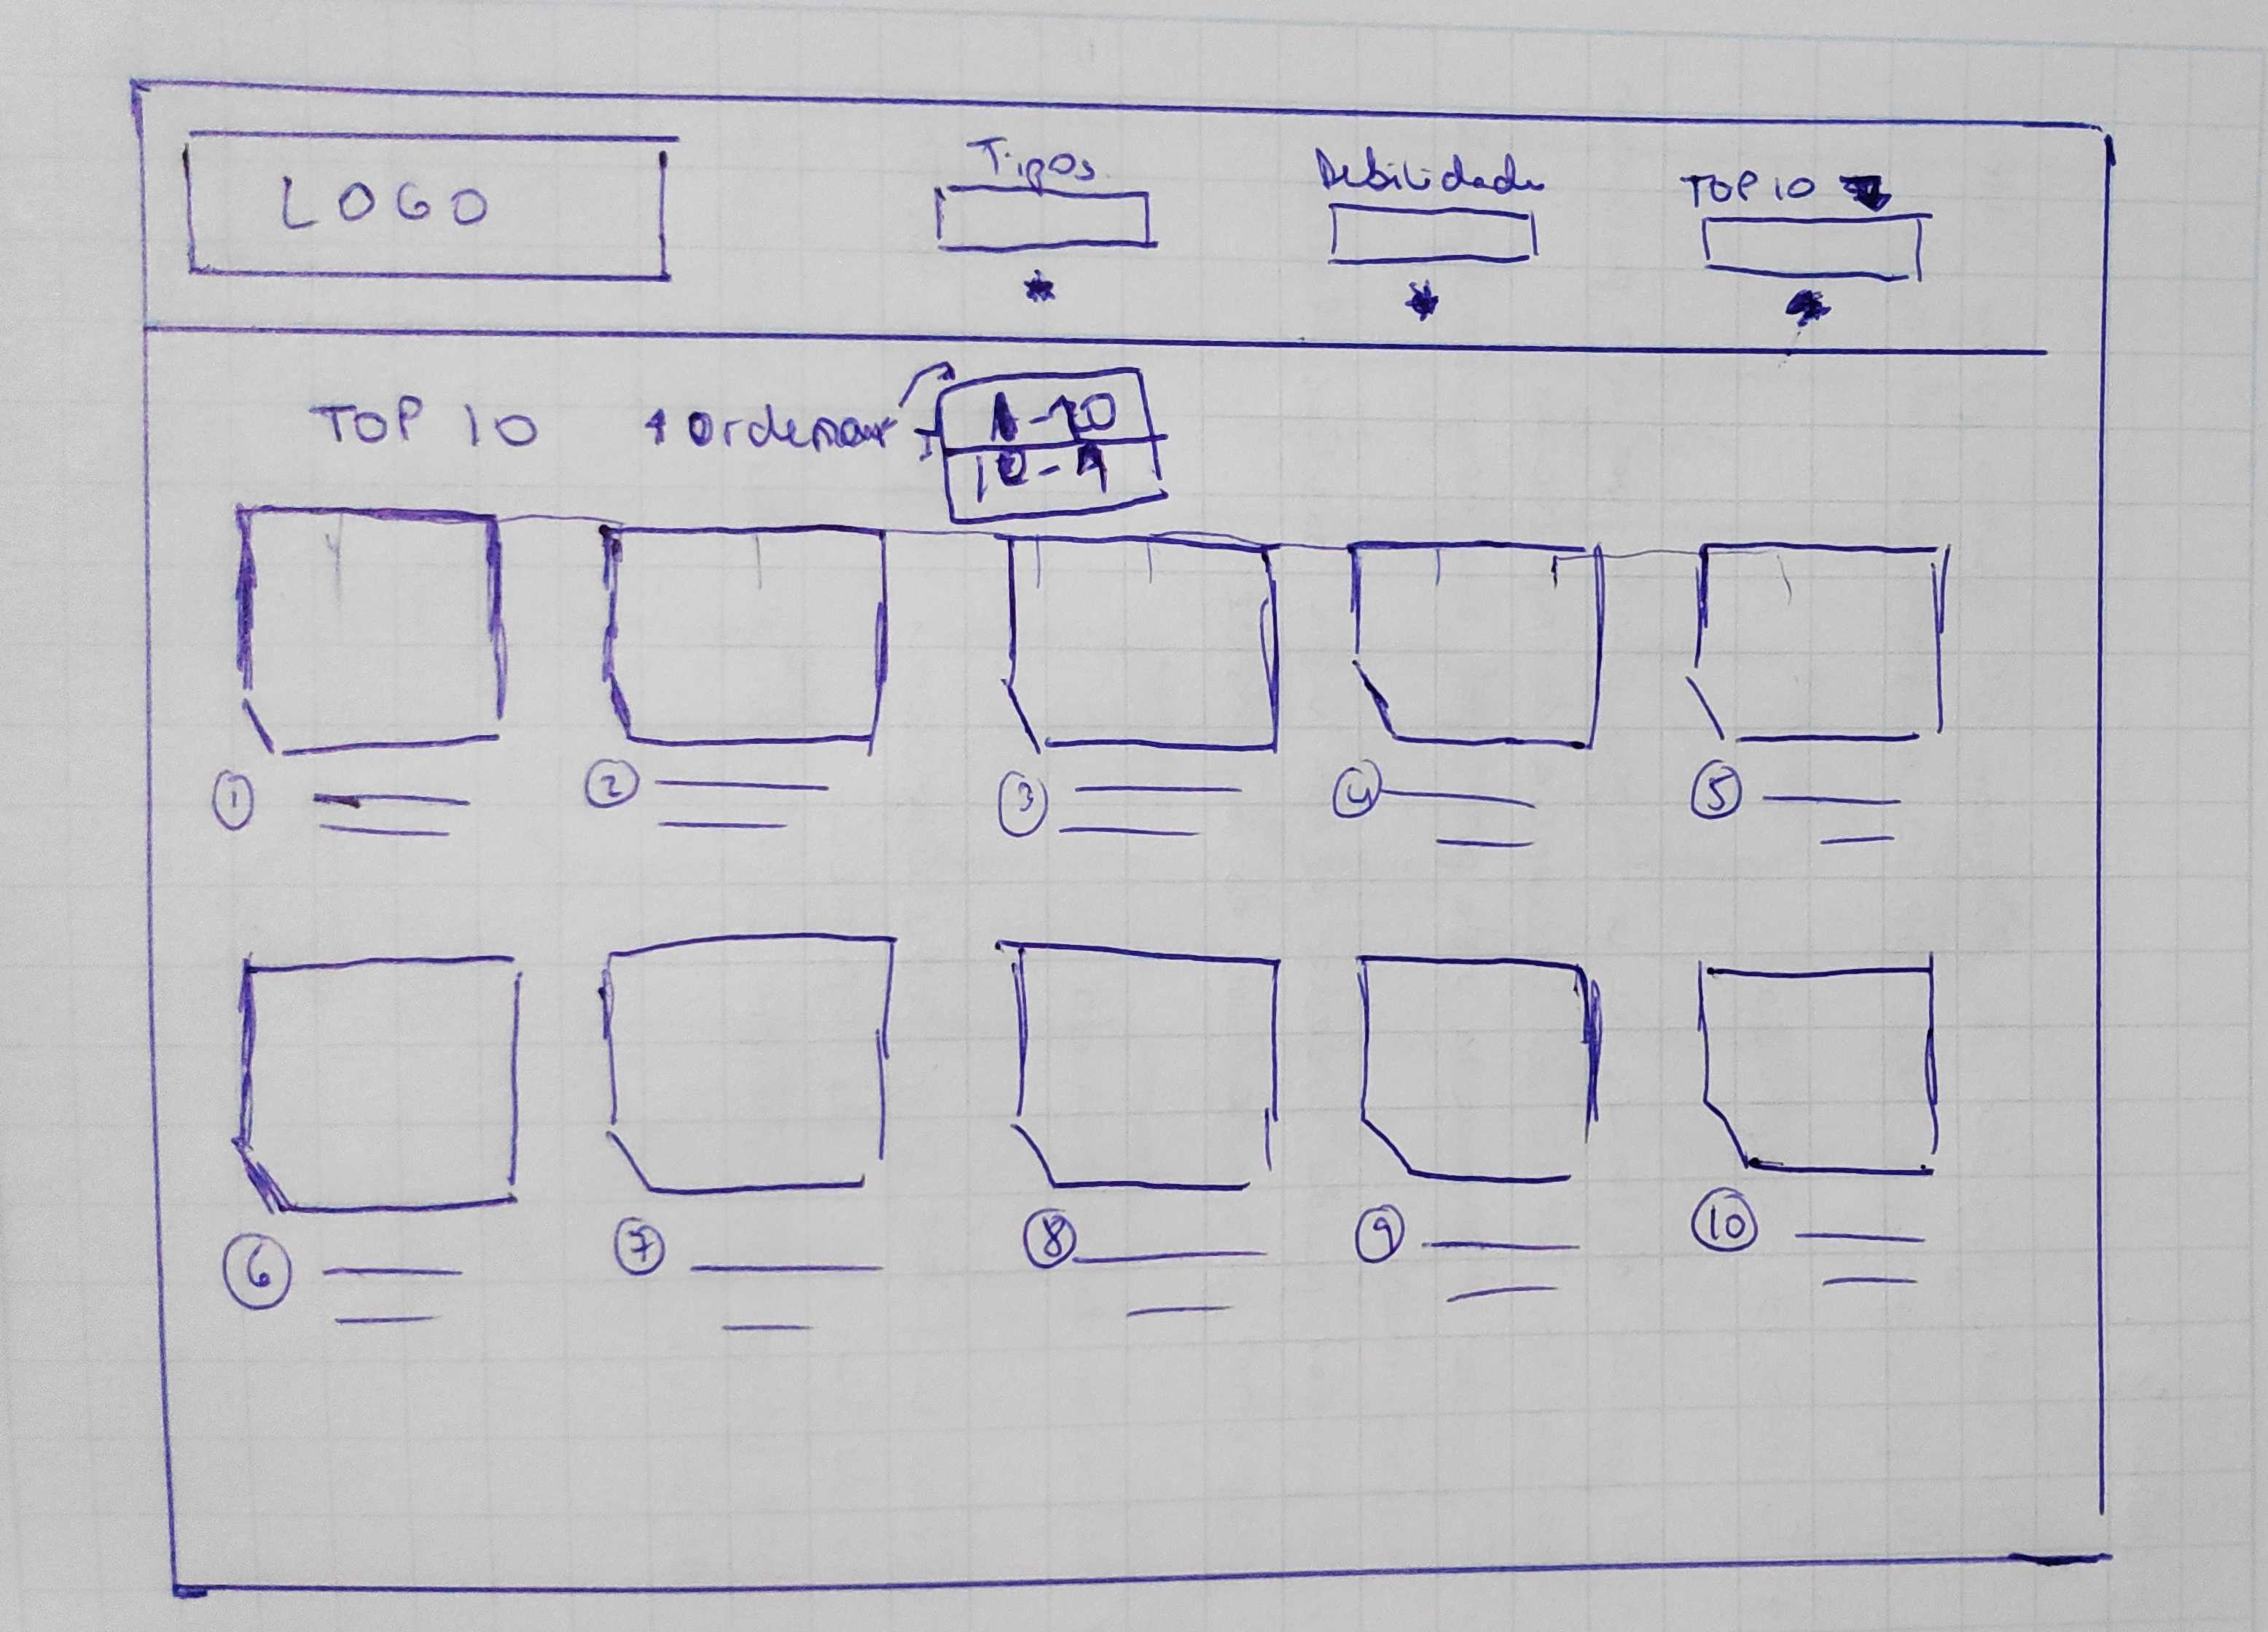 LOGO
Tipos
Debilidade
TOP 10
TOP 10
Ordenar
1-10
10-1
1
2
3
4
5
6
7
8
9
10